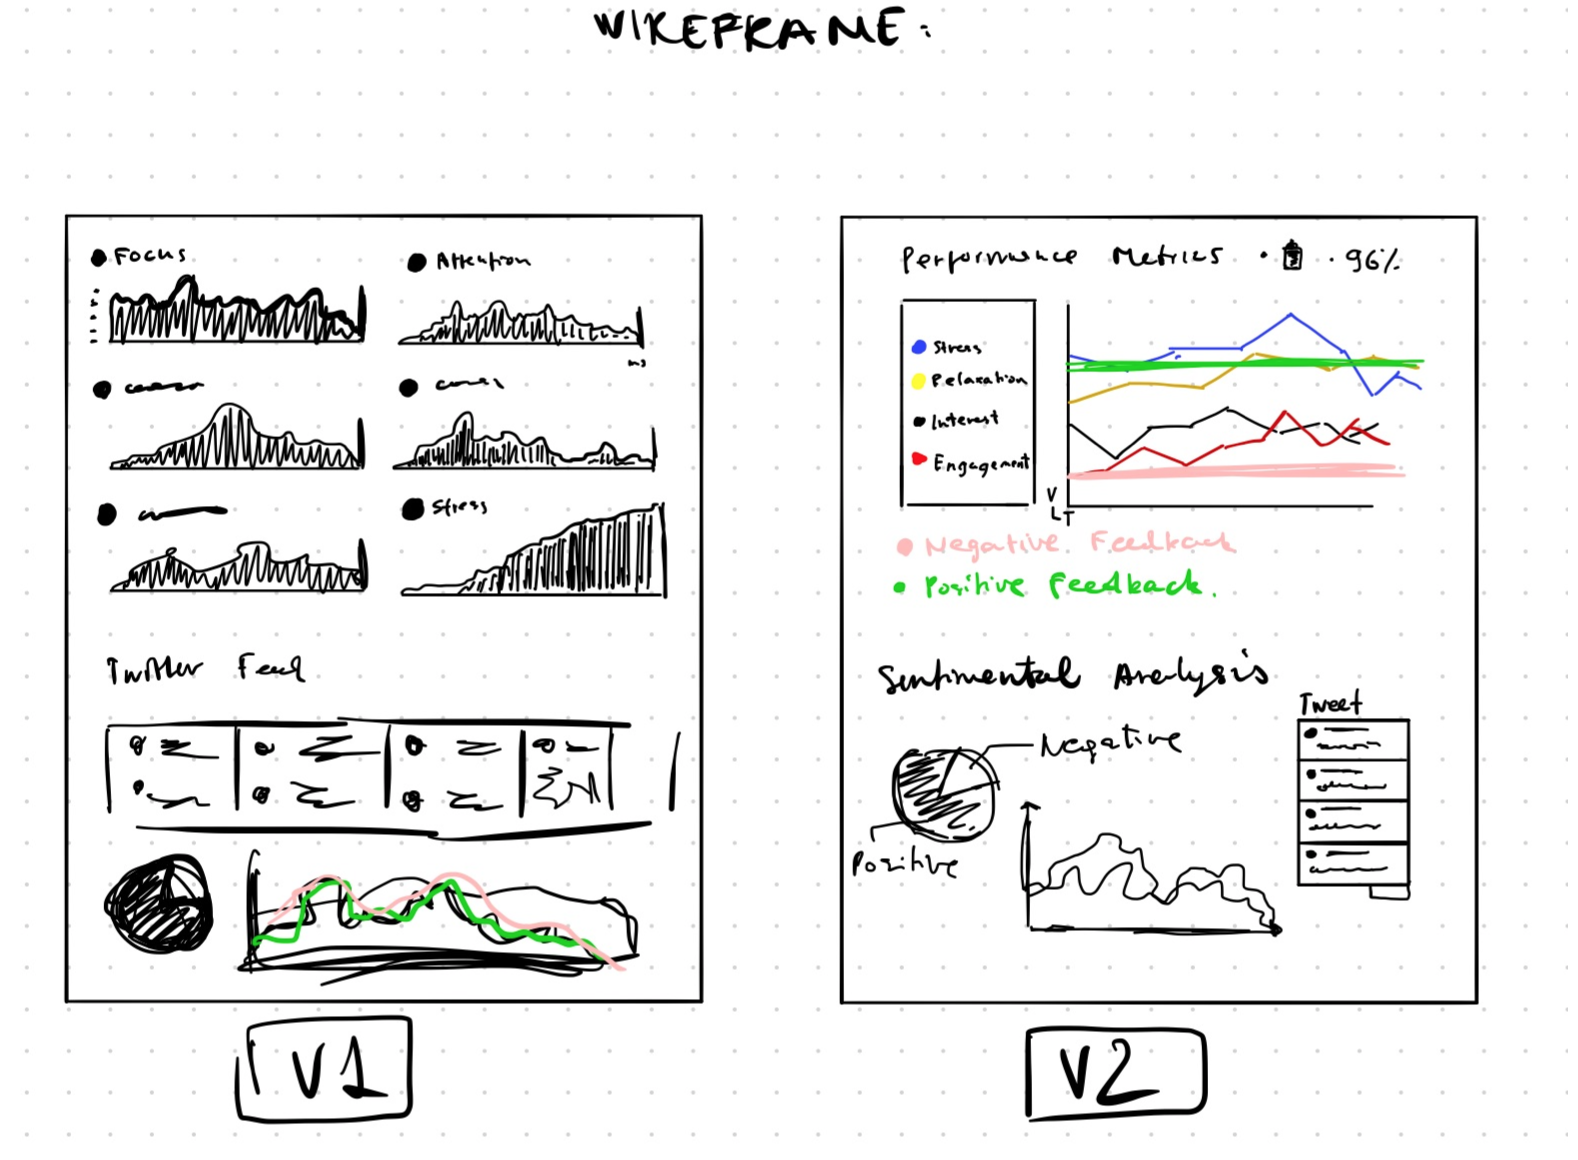 WIREFRAME:
Focus
Attention
ms
Stress
Twitter Feed
V1
Performance Metrics · 96%
Stress
Relaxation
Interest
Engagement
V
LT
Negative Feedback
Positive Feedback.
Sentimental Analysis
Tweet
Negative
Positive
V2